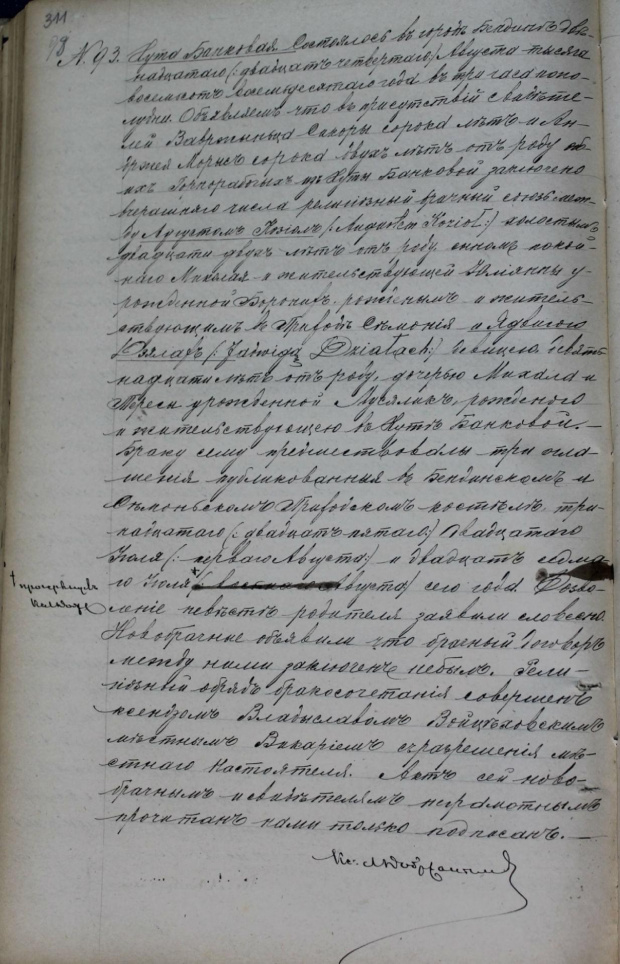 311
98
N. 93. Хута Банковая. Состоялось въ городѣ Бендинѣ две-
надцатаго /: двадцать четвертаго :/ Августа тысяча
восемьсотъ восемьдесятаго года въ три часа попо-
лудни. Объявляемъ что въ присутствiй свидѣте-
лей Завржинца Сикоры сорока лѣтъ и Ан-
држея Морыч сорока двухъ лѣтъ отъ роду обо-
ихъ Горнорабочихъ изъ Хуты Банковой заключено
вчерашняго числа религiозный брачный союзъ меж-
ду Августомъ Козіолъ /: August Kozioł :/ холостымъ
двадцати двухъ лѣтъ отъ роду, сыномъ покой-
наго Михала и жительствующей Юлiянны у-
рожденной рожденнымъ и житель-
ствующимъ въ Приходѣ Семонiя и Ядвигою
Дзялахъ /: Jadwigą Działach :/ девицею, девят-
надцати лѣтъ отъ роду, дочерью Михала и
Тересы урожденной Мусяликъ, рожденою
и жительствующею въ Хутѣ Банковой. —
Браку сему предшествовали три огла-
шенія публикованныя въ Бендинскомъ и
Семоньскомъ Приходскомъ костелѣ три-
надцатаго /: двадцать пятаго :/ двадцатаго
Іюля /: перваго Августа :/ и двадцать седма-
го Іюля / Августа / сего года. Дозво-
леніе невѣстѣ родителя заявили словесно.
Новобрачные объявили что брачный договоръ
между ними заключенъ небылъ. Рели-
гіозный обрядъ бракосочетанія совершенъ
ксендзомъ Владыславомъ Войцѣховскимъ
мѣстнымъ Викаріемъ съ разрешенія мѣ-
стнаго Настоятеля. Актъ сей ново-
брачнымъ и свидѣтелямъ неграмотнымъ
прочитанъ нами только подписанъ. —
Кс.